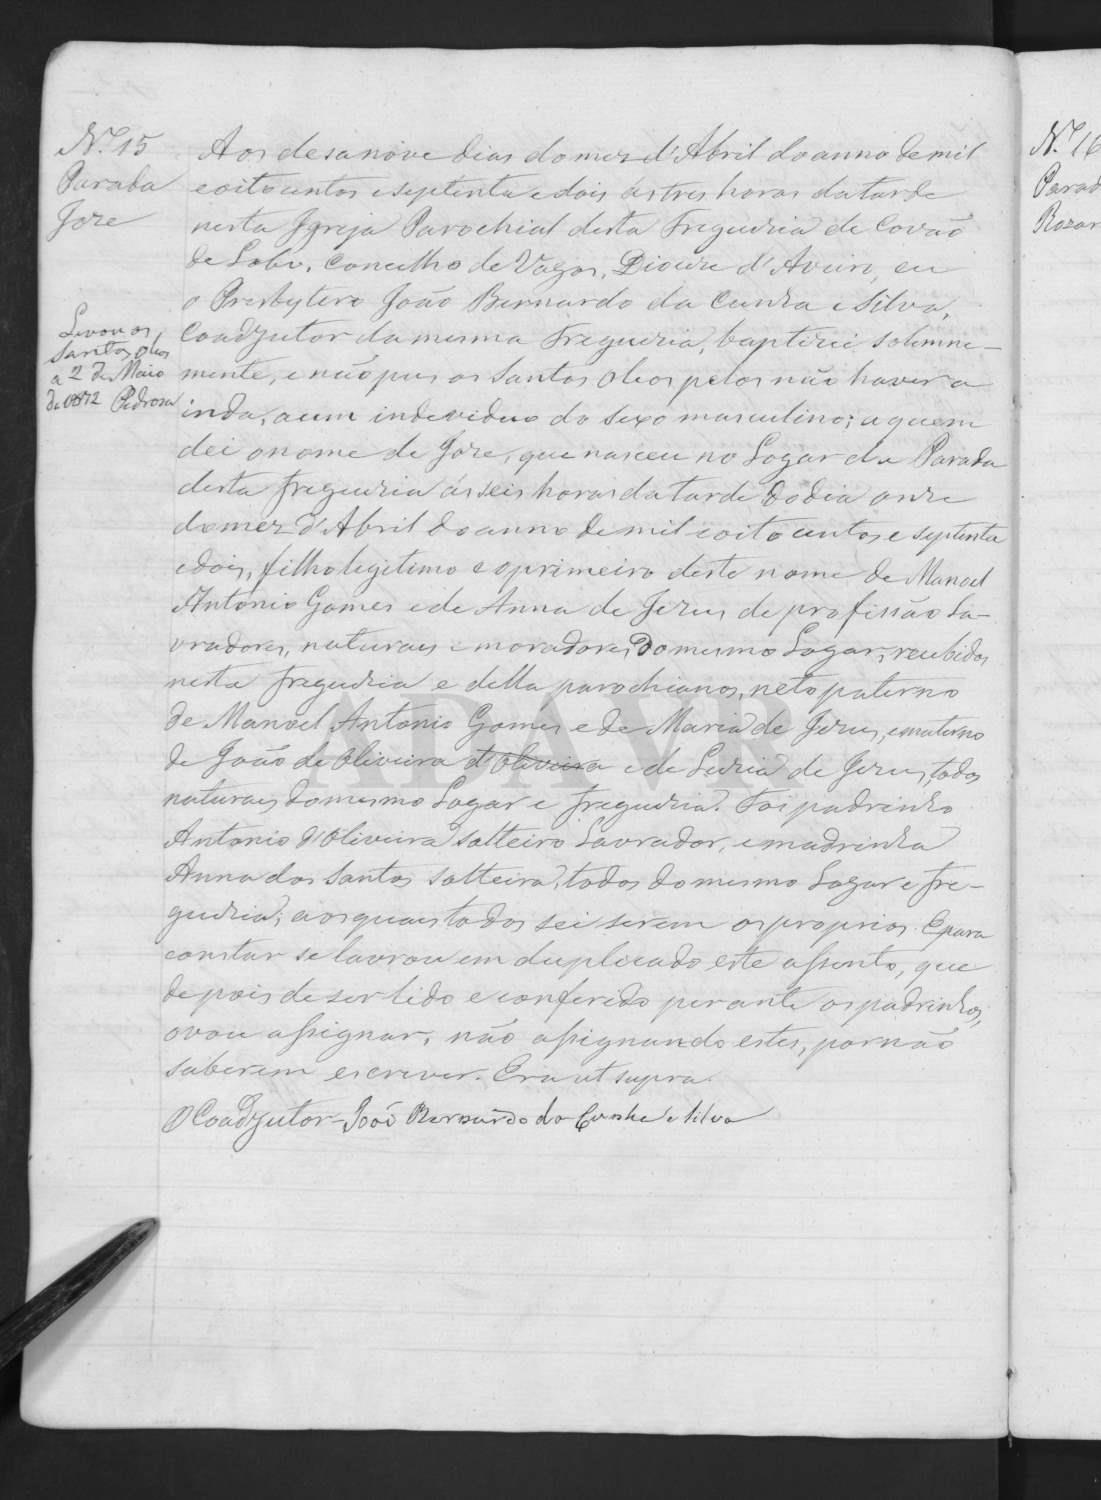 Nº 15
Parada
Joze
Levou os
Santos Oleos
a 2 de Maio
de 1872 Pedrosa
Aos desanove dias do mez d'Abril do anno de mil
e oito centos e septenta e dois ás tres horas da tarde
nesta Igreja Parochial desta Freguezia de Covão
de Lobo, Concelho de Vagos, Diocese d'Aveiro, eu
o Presbytero João Bernardo da Cunha e Silva,
Coadjutor da mesma Freguezia, baptizei solemne-
mente, e não pus os Santos Oleos pelos não haver a
inda, a um individuo do sexo masculino; a quem
dei o nome de Joze, que nasceu no Logar da Parada
desta freguezia ás seis horas da tarde do dia onze
do mez d'Abril do anno de mil e oito centos e septenta
e dois, filho legitimo e o primeiro deste nome de Manoel
Antonio Gomes e de Anna de Jezus de profissão La-
vradores, naturaes e moradores do mesmo Logar, recebidos
nesta freguezia e della parochianos, neto paterno
de Manoel Antonio Gomes e de Maria de Jezus, e materno
de João de Oliveira d'Oliveira e de Luzia de Jezus, todos
naturaes do mesmo Logar e freguezia. Foi padrinho
Antonio d'Oliveira solteiro Lavrador, e madrinha
Anna dos Santos solteira, todos do mesmo Logar e fre-
guezia; aos quaes todos sei serem os proprios. E para
constar se lavrou em duplicado este assento, que
depois de ser lido e conferido perante os padrinhos,
o vou assignar, não assignando estes, por não
saberem escrever. Era ut supra.
O Coadjutor João Bernardo da Cunha e Silva
ADAVR
Nº 16
Parad
Rozar